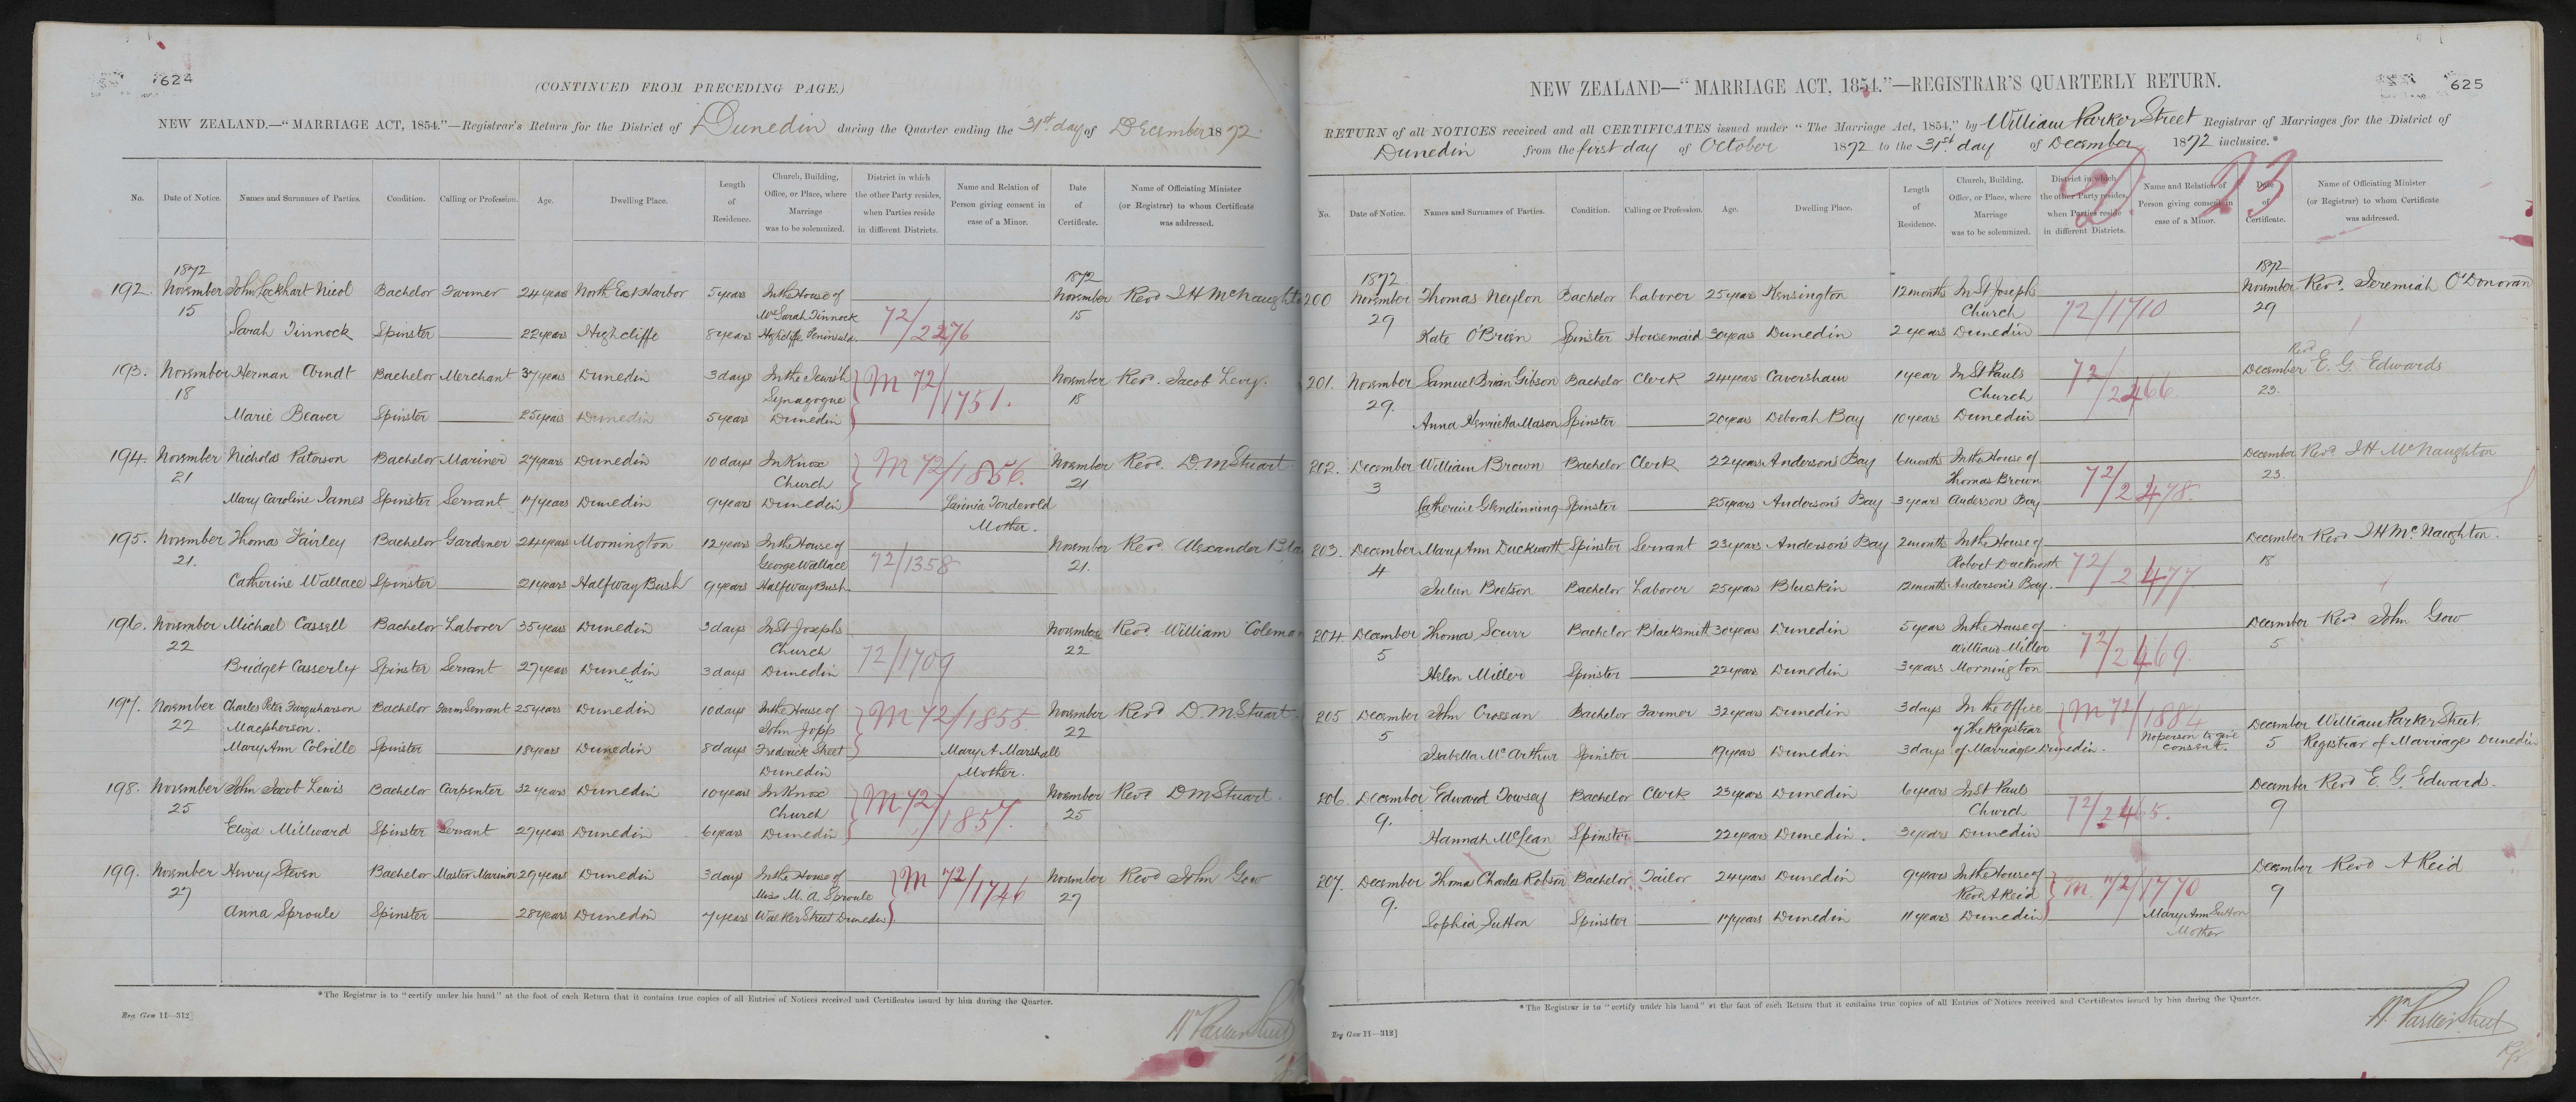 624
(CONTINUED FROM PRECEDING PAGE.)
NEW ZEALAND.—"MARRIAGE ACT, 1854."—Registrar's Return for the District of Dunedin during the Quarter ending the 31st. day of December 1872.
No. Date of Notice. Names and Surnames of Parties. Condition. Calling or Profession. Age. Dwelling Place. Length of Residence. Church, Building, Office, or Place, where Marriage was to be solemnized. District in which the other Party resides, when Parties reside in different Districts. Name and Relation of Person giving consent in case of a Minor. Date of Certificate. Name of Officiating Minister (or Registrar) to whom Certificate was addressed.
1872 1872
192. November John Lockhart Nicol Bachelor Farmer 24 years North East Harbor 5 years In the House of November Revd J H McNaughto
15 Mrs Sarah Tinnock 72/2276 15
Sarah Tinnock Spinster 22 years Highcliffe 8 years Highcliffe Peninsula.
193. November Herman Arndt Bachelor Merchant 37 years Dunedin 3 days In the Jewish M 72/1751. November Rev. Jacob Levy.
18 Synagogue 18
Marie Beaver Spinster 25 years Dunedin 5 years Dunedin
194. November Nicholas Paterson Bachelor Mariner 27 years Dunedin 10 days In Knox M 72/1856. November Revd. D. M Stuart
21 Church 21
Mary Caroline James Spinster Servant 17 years Dunedin 9 years Dunedin
Mother.
195. November Thomas Fairley Bachelor Gardener 24 years Mornington 12 years In the House of November Revd Alexander Bla
21. George Wallace 72/1358 21.
Catherine Wallace Spinster 21 years Halfway Bush 9 years Halfway Bush.
196. November Michael Cassell Bachelor Laborer 35 years Dunedin 3 days In St Josephs November Revd William Coleman
22 Church 72/1709 22
Bridget Casserly Spinster Servant 27 years Dunedin 3 days Dunedin
197. November Charles Peter Farquharson Bachelor Farm Servant 25 years Dunedin 10 days In the House of M 72/1855 November Revd D. M Stuart.
22 Macpherson. John Jopp 22
Mary Ann Colville Spinster 18 years Dunedin 8 days Frederick Street Mary A Marshall
Dunedin Mother.
198. November John Jacob Lewis Bachelor Carpenter 32 years Dunedin 10 years In Knox M 72/1857. November Revd D M Stuart.
25 Church 25
Eliza Millward Spinster Servant 27 years Dunedin 6 years Dunedin
199. November Henry Steven Bachelor Master Mariner 29 years Dunedin 3 days In the House of M 72/1746 November Revd John Gow
27 Miss M. A. Sproule 27
Anna Sproule Spinster 28 years Dunedin 7 years Walker Street Dunedin
*The Registrar is to "certify under his hand" at the foot of each Return that it contains true copies of all Entries of Notices received and Certificates issued by him during the Quarter.
Reg Gen 11—312]
W Parker Street
625
NEW ZEALAND—"MARRIAGE ACT, 1854."—REGISTRAR'S QUARTERLY RETURN.
RETURN of all NOTICES received and all CERTIFICATES issued under "The Marriage Act, 1854," by William Parker Street Registrar of Marriages for the District of
Dunedin from the first day of October 1872 to the 31st day of December 1872 inclusive.*
D 23
No. Date of Notice. Names and Surnames of Parties. Condition. Calling or Profession. Age. Dwelling Place. Length of Residence. Church, Building, Office, or Place, where Marriage was to be solemnized. District in which the other Party resides, when Parties reside in different Districts. Name and Relation of Person giving consent in case of a Minor. Date of Certificate. Name of Officiating Minister (or Registrar) to whom Certificate was addressed.
1872 1872
200 November Thomas Neylon Bachelor Laborer 25 years Kensington 12 months In St Josephs November Revd. Jeremiah O'Donovan
29 Church 72/1710 29
Kate O'Brien Spinster Housemaid 30 years Dunedin 2 years Dunedin
201. November Samuel Brian Gibson Bachelor Clerk 24 years Caversham 1 year In St Pauls 72/2466 December Revd E. G. Edwards
29. Church 23.
Anna Henrietta Mason Spinster 20 years Deborah Bay 10 years Dunedin
202. December William Brown Bachelor Clerk 22 years Anderson's Bay 6 months In the House of December Revd J H McNaughton
3 Thomas Brown 72/2478. 23.
Catherine Glendinning Spinster 25 years Anderson's Bay 3 years Anderson's Bay
203. December Mary Ann Duckworth Spinster Servant 23 years Anderson's Bay 2 month In the House of December Revd J H McNaughton.
4 Robert Duckworth 72/2477 18
Julien Beetson Bachelor Laborer 25 years Blueskin 12 month Anderson's Bay.
204 December Thomas Scurr Bachelor Blacksmith 30 years Dunedin 5 years In the House of December Revd John Gow
5 William Miller 72/2469. 5
Helen Miller Spinster 22 years Dunedin 3 years Mornington
205 December John Crossan Bachelor Farmer 32 years Dunedin 3 days In the Office M 72/1884 December William Parker Street.
5 of The Registrar No person to give consent. 5 Registrar of Marriages Dunedin
Isabella McArthur Spinster 19 years Dunedin 3 days of Marriages Dunedin.
206. December Edward Towsey Bachelor Clerk 23 years Dunedin 6 years In St Pauls December Revd E. G. Edwards.
9. Church 72/2465. 9
Hannah McLean Spinster 22 years Dunedin. 3 years Dunedin
207. December Thomas Charles Robson Bachelor Tailor 24 years Dunedin 9 years In the House of M 72/1770 December Revd A Reid
9. Revd A Reid 9
Sophia Sutton Spinster 17 years Dunedin 11 years Dunedin Mary Ann Sutton
Mother
*The Registrar is to "certify under his hand" at the foot of each Return that it contains true copies of all Entries of Notices received and Certificates issued by him during the Quarter.
Reg Gen 11—312]
W. Parker Street